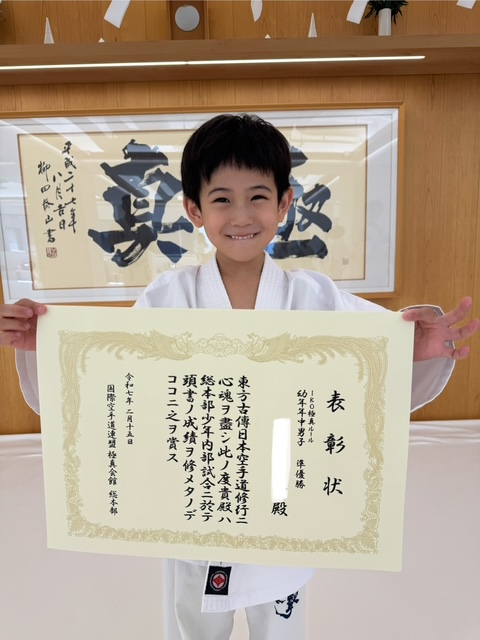 極真
平成二十七年
八月吉日
柳田泰山書
表彰状
IKO極真ルール
幼年年中男子 準優勝
殿
東方古傳日本空手道修行ニ
心魂ヲ盡シ此ノ度貴殿ハ
総本部少年内部試合ニ於テ
頭書ノ成績ヲ修メタノデ
ココニ之ヲ賞ス
令和七年二月十五日
国際空手道連盟 極真会館 総本部